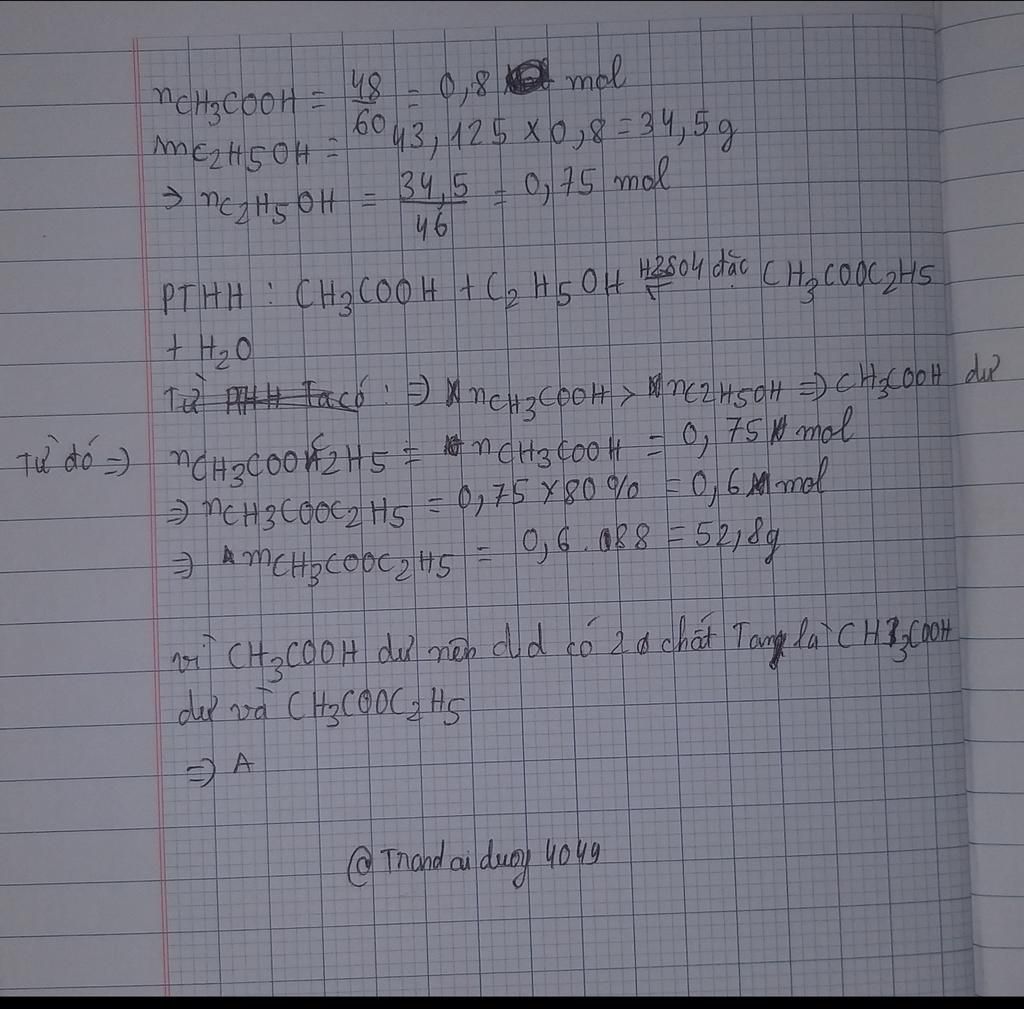 nCH3COOH = 48/60 = 0,8 mol
mC2H5OH = 43,125 x 0,8 = 34,5g
⇒ nC2H5OH = 34,5/46 = 0,75 mol
PTHH : CH3COOH + C2H5OH ⇌ H2SO4 đặc CH3COOC2H5
+ H2O
Từ PTHH Ta có : ⇒ nCH3COOH > nC2H5OH ⇒ CH3COOH dư
Từ đó ⇒) nCH3COOC2H5 = nCH3COOH = 0,75 mol
⇒ nCH3COOC2H5 = 0,75 x 80% = 0,6 mol
⇒ mCH3COOC2H5 = 0,6 . 88 = 52,8g
vì CH3COOH dư nên d d có 2 chất Tan là CH3COOH
dư và CH3COOC2H5
⇒ A